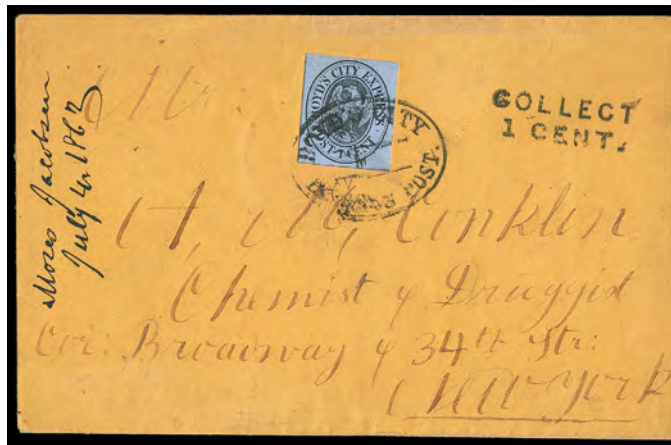 Moses Jacobson
July 4. 1862
BOYD'S CITY EXPRESS
CENT
CITY
POST.
COLLECT
1 CENT.
Mr.
Conklin
Chemist & Druggist
Cor: Broadway & 34th Str:
New York